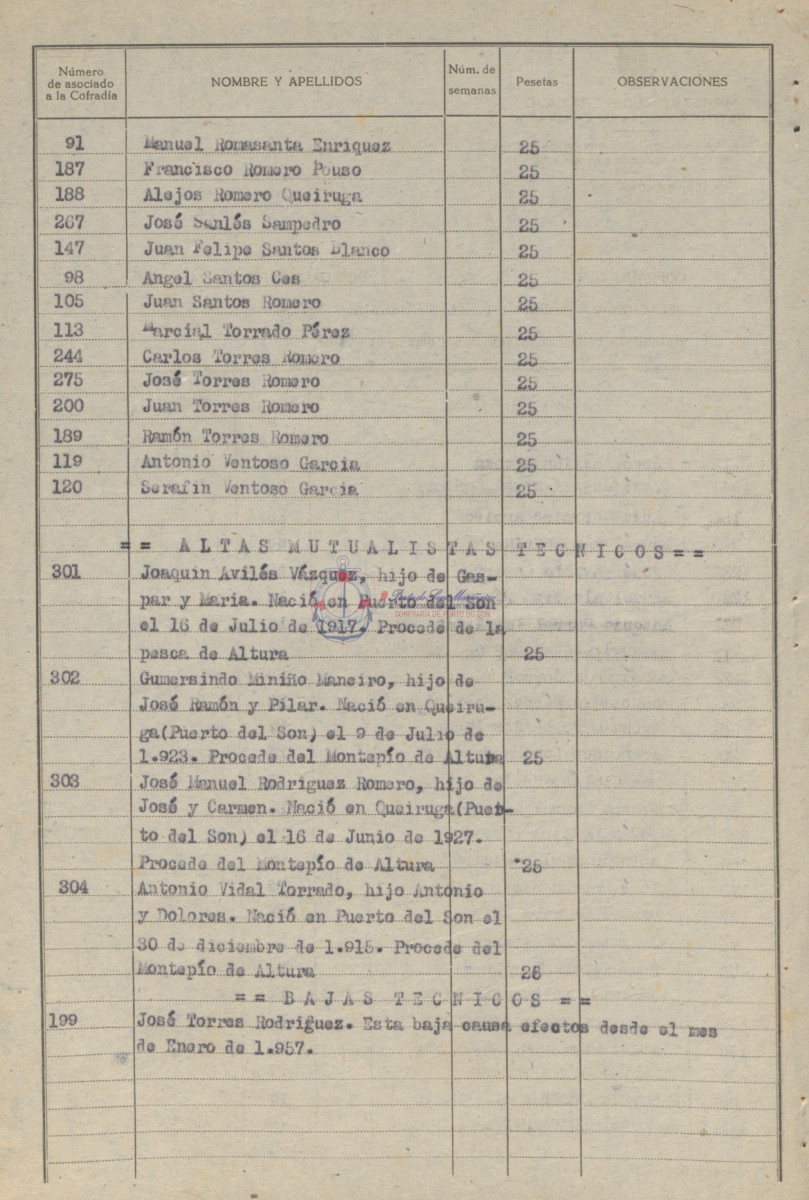 Número de asociado a la Cofradía NOMBRE Y APELLIDOS Núm. de semanas Pesetas OBSERVACIONES
91 Manuel Romasanta Enriquez 25
187 Francisco Romero Pouso 25
188 Alejos Romero Queiruga 25
267 José Sanlés Sampedro 25
147 Juan Felipe Santos Blanco 25
98 Angel Santos Ces 25
105 Juan Santos Romero 25
113 Marcial Torrado Pérez 25
244 Carlos Torres Romero 25
275 José Torres Romero 25
200 Juan Torres Romero 25
189 Ramón Torres Romero 25
119 Antonio Ventoso Garcia 25
120 Serafin Ventoso Garcia 25
== ALTAS MUTUALISTAS TECNICOS==
301 Joaquin Avilés Vázquez, hijo de Gas-
par y Maria. Nació en Puerto del Son
el 16 de Julio de 1917. Procede de la
pesca de Altura 25
302 Gumersindo Miniño Maneiro, hijo de
José Ramón y Pilar. Nació en Queiru-
ga(Puerto del Son) el 9 de Julio de
1.923. Procede del Montepío de Altura 25
303 José Manuel Rodriguez Romero, hijo de
José y Carmen. Nació en Queiruga(Puer-
to del Son) el 16 de Junio de 1927.
Procede del Montepío de Altura 25
304 Antonio Vidal Torrado, hijo Antonio
y Dolores. Nació en Puerto del Son el
30 de diciembre de 1.915. Procede del
Montepío de Altura 25
== BAJAS TECNICOS ==
199 José Torres Rodriguez. Esta baja causa efectos desde el mes
de Enero de 1.957.
COFRADÍA DE PORTO DO SON